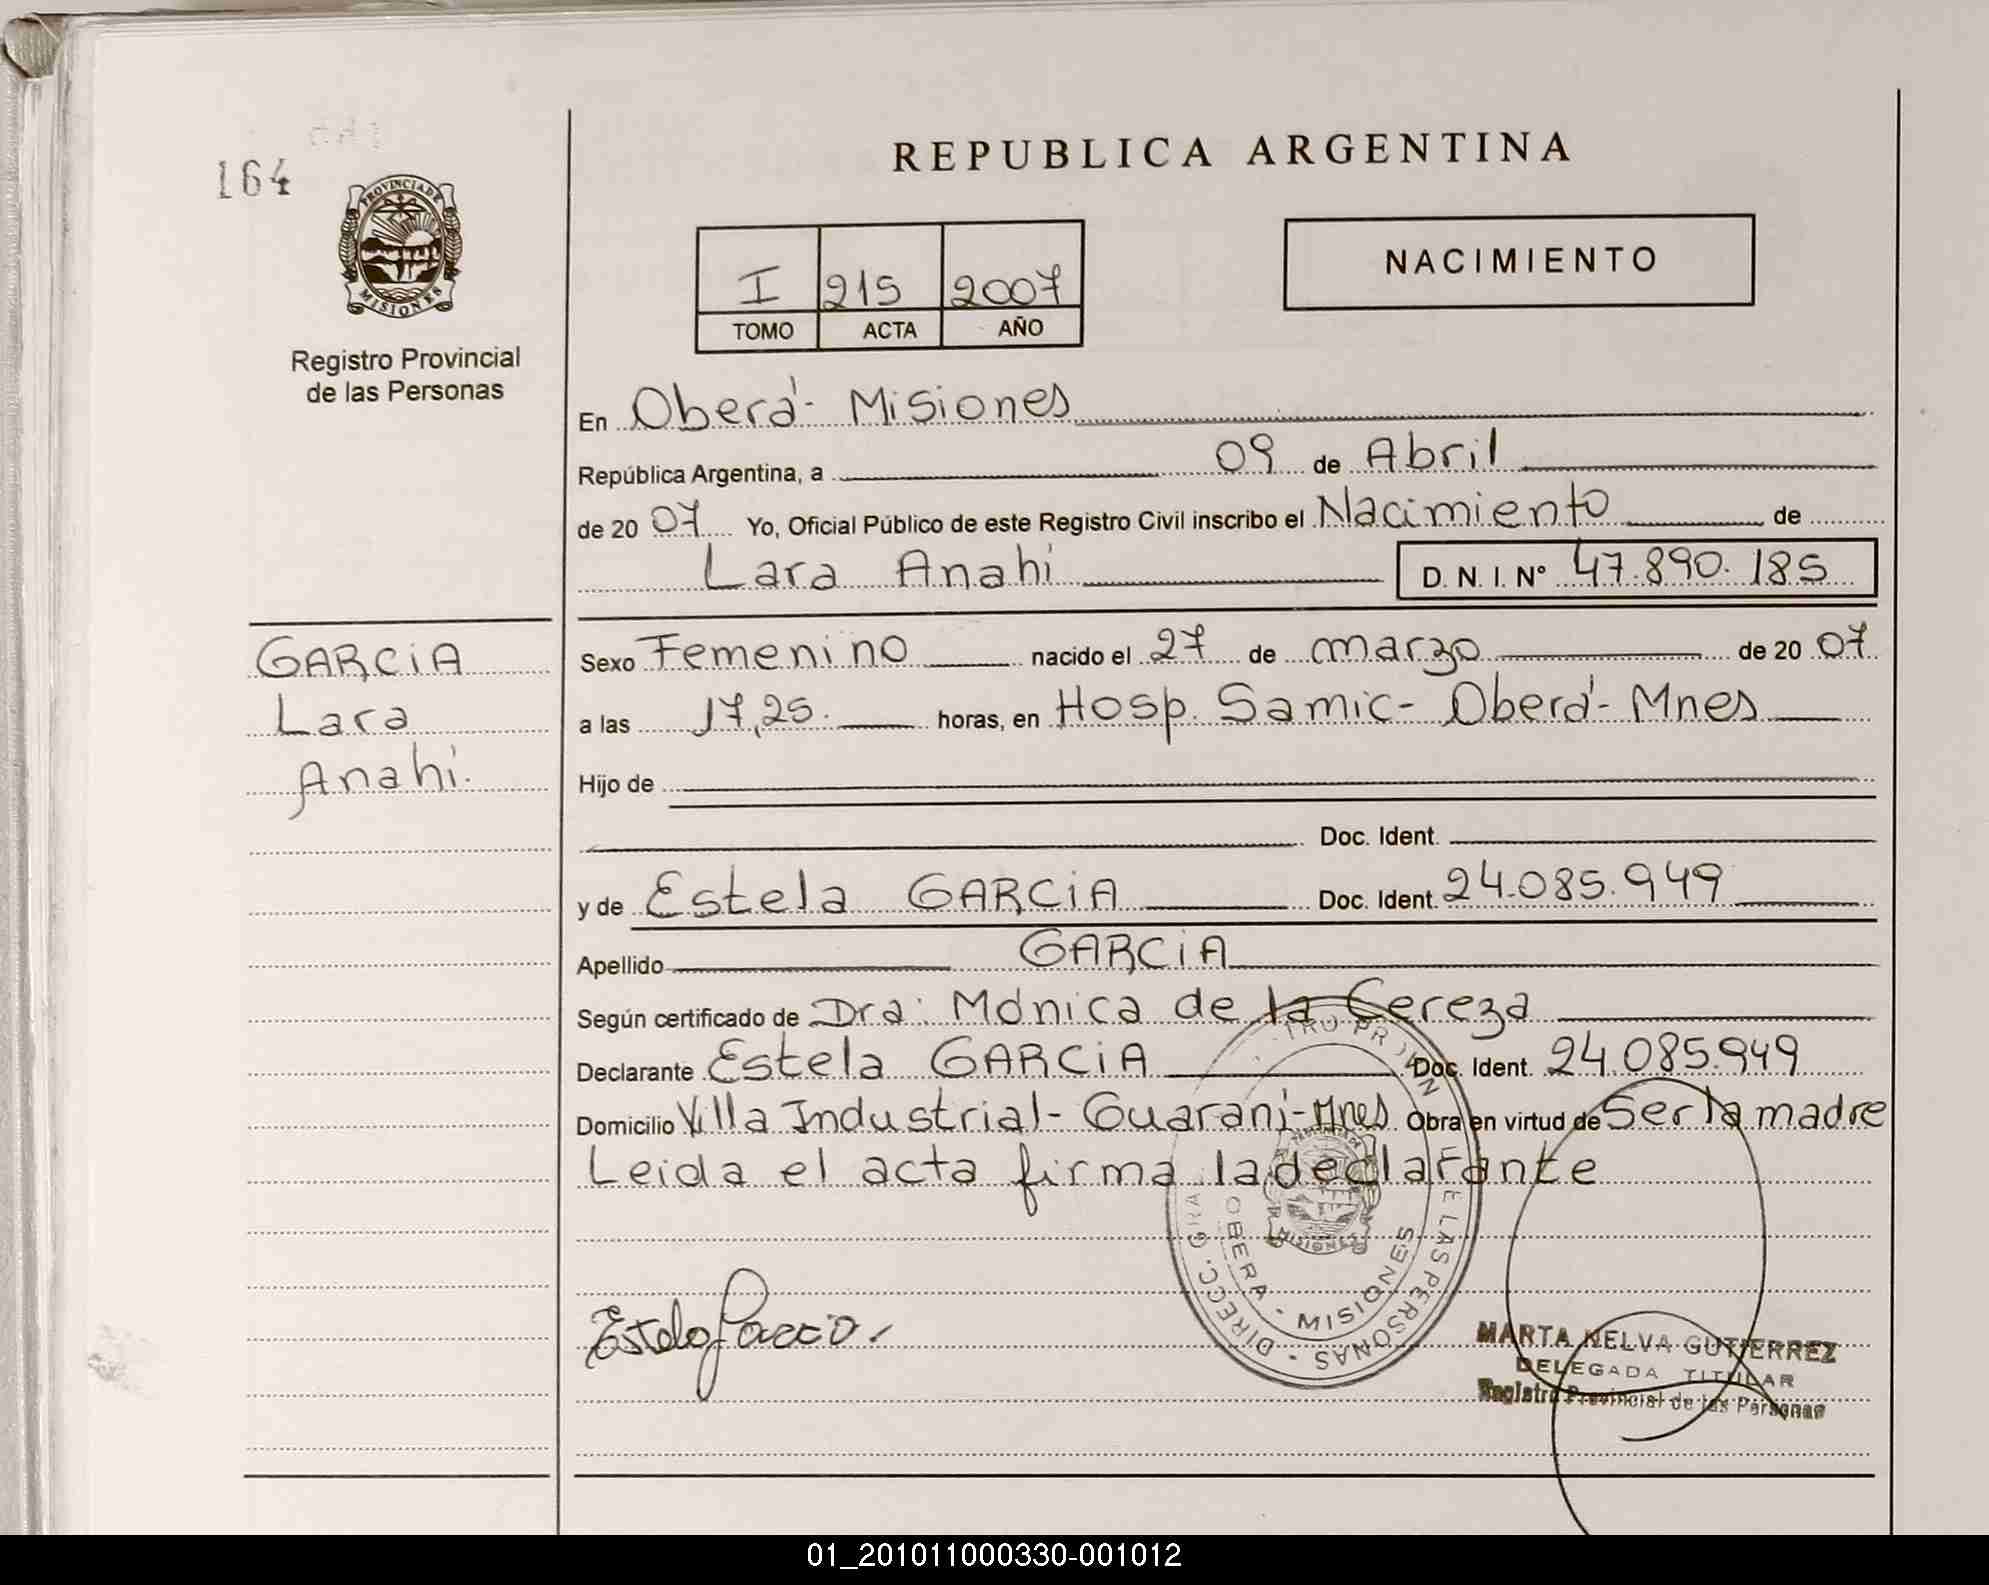 164
PROVINCIA DE
MISIONES
Registro Provincial
de las Personas
REPUBLICA ARGENTINA
I 215 2007
TOMO ACTA AÑO
NACIMIENTO
En Oberá- Misiones
República Argentina, a 09 de Abril
de 20 07 Yo, Oficial Público de este Registro Civil inscribo el Nacimiento de
Lara Anahi D. N. I. N° 47.890.185
GARCiA
Lara
Anahi.
Sexo Femenino nacido el 27 de marzo de 20 07
a las 17,25. horas, en Hosp. Samic- Oberá- Mnes
Hijo de
Doc. Ident.
y de Estela GARCiA Doc. Ident. 24.085.949
Apellido GARCiA
Según certificado de Dra: Mónica de la Cereza
Declarante Estela GARCiA Doc. Ident. 24.085.949
Domicilio Villa Industrial- Guarani-Mnes Obra en virtud de Ser la madre
Leida el acta firma la declarante
Estela Garcia.
DIRECC. GRAL
DE LAS PERSONAS
OBERA - MISIONES
MISIONES
MARTA NELVA GUTIERREZ
DELEGADA TITULAR
Registro Provincial de las Personas
01_201011000330-001012